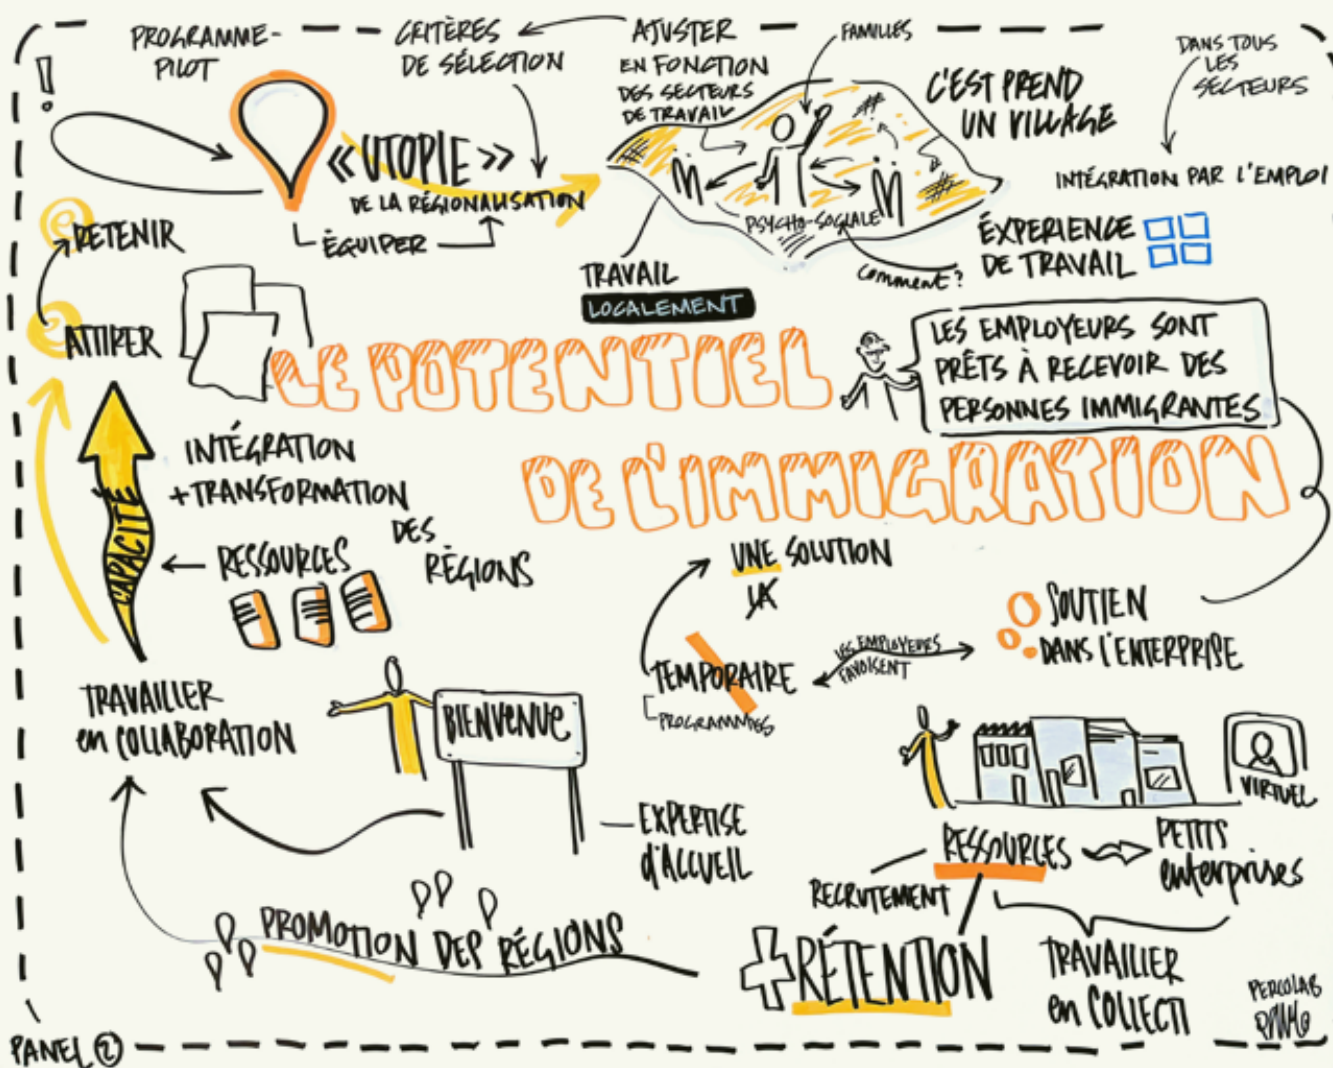 !
PROGRAMME-
PILOT
CRITÈRES
DE SÉLECTION
AJUSTER
EN FONCTION
DES SECTEURS
DE TRAVAIL
FAMILLES
C'EST PREND
UN VILLAGE
DANS TOUS
LES
SECTEURS
INTÉGRATION PAR L'EMPLOI
« UTOPIE »
DE LA RÉGIONALISATION
ÉQUIPER
PSYCHO-SOCIALE
Comment?
ÉXPERIENCE
DE TRAVAIL
TRAVAIL
LOCALEMENT
RETENIR
ATTIRER
LE POTENTIEL
DE L'IMMIGRATION
LES EMPLOYEURS SONT
PRÊTS À RECEVOIR DES
PERSONNES IMMIGRANTES
CAPACITÉ
INTÉGRATION
+TRANSFORMATION
DES
RÉGIONS
RESSOURCES
UNE SOLUTION
LA
TEMPORAIRE
PROGRAMMES
LES EMPLOYEURS
FAVOISENT
SOUTIEN
DANS L'ENTERPRISE
TRAVAILLER
en COLLABORATION
BIENVENUE
EXPERTISE
d'ACCUEIL
VIRTUEL
RESSOURCES
PETITS
enterprises
RECRUTEMENT
PROMOTION DES RÉGIONS
+RÉTENTION
TRAVAILLER
en COLLECTI
PERCOLAB
PANEL 2